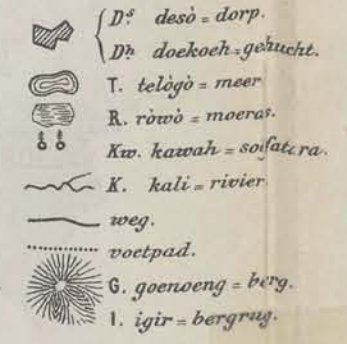 Ds. desò = dorp.
Dh. doekoeh = gehucht.
T. telògò = meer
R. ròwò = moeras.
Kw. kawah = solfatara.
K. kali = rivier.
weg.
voetpad.
G. goenoeng = berg.
I. igir = bergrug.